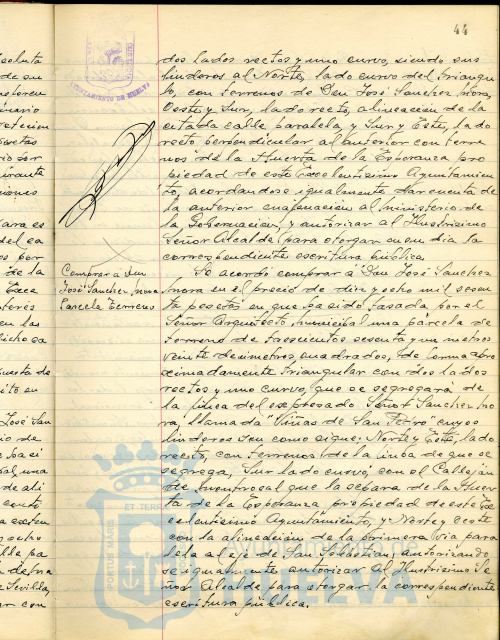 44
AYUNTAMIENTO DE HUELVA
dos lados rectos y uno curvo, siendo sus
linderos al Norte, lado curvo del triangu-
lo, con terrenos de Don José Sanchez Mora,
Oeste y Sur, lado recto, alineacion de la
citada calle paralela, y Sur y Este, lado
recto perpendicular al anterior con terre
nos de la Huerta de la Esperanza pro
piedad de este Excelentisimo Ayuntamien
to, acordandose igualmente dar cuenta de
la anterior enagenacion al ministerio de
la Gobernacion, y autorizar al Ilustrisimo
Señor Alcalde para otorgar en su dia la
correspondiente escritura publica.
Comprar a Don
José Sanchez Mora
Parcela Terreno
Se acordó comprar a Don José Sanchez
Mora en el precio de diez y ocho mil sesen
ta pesetas en que ha sido tasada por el
Señor Arquitecto municipal una parcela de
terreno de trescientos sesenta y un metros
veinte decimetros cuadrados, de forma apro
ximadamente triangular con dos lados
rectos y uno curvo, que se segregará de
la finca del expresado Señor Sanchez Mo
ra, llamada "Viñas de San Pedro" cuyos
linderos son como sigue: Norte y Este, lado
recto, con terrenos de la finca de que se
segrega, Sur lado curvo, con el Callejon
de que la separa de la Huer
ta de la Esperanza propiedad de este Ex
celentisimo Ayuntamiento, y Norte y Oeste
con la alineacion de la primera via para
lela al eje de San Sebastian autorizando
se igualmente autorizar al Ilustrisimo Se
ñor Alcalde para otorgar la correspondiente
escritura publica.
PORTUS MARIS ET TERRAE
HUELVA